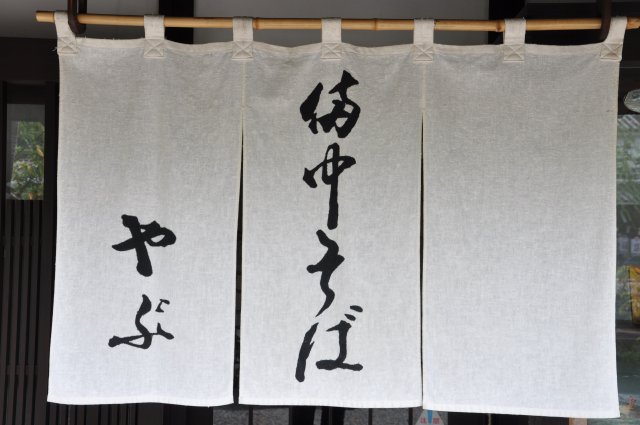 備中そば
やぶ